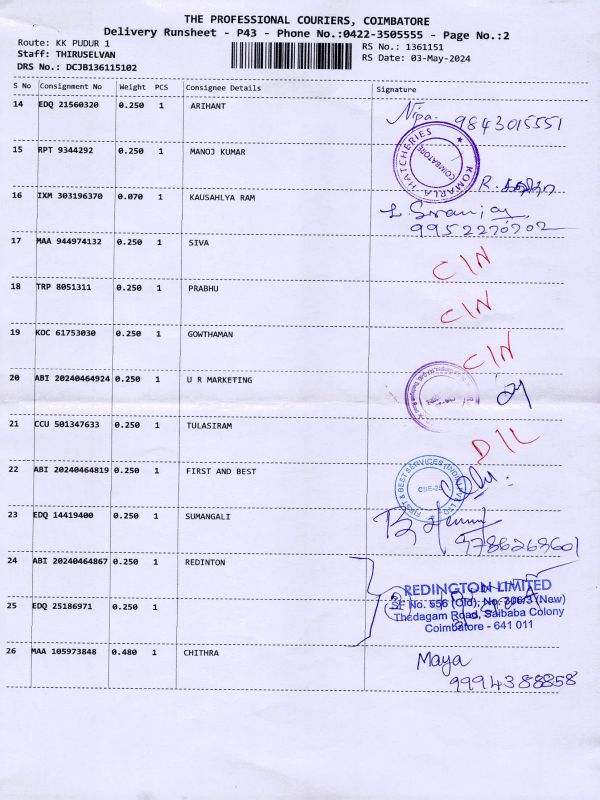 THE PROFESSIONAL COURIERS, COIMBATORE
Delivery Runsheet - P43 - Phone No.:0422-3505555 - Page No.:2
Route: KK PUDUR 1
Staff: THIRUSELVAN
DRS No.: DCJB136115102
RS No.: 1361151
RS Date: 03-May-2024
S No Consignment No Weight PCS Consignee Details Signature
14 EDQ 21560320 0.250 1 ARIHANT
9843015551
15 RPT 9344292 0.250 1 MANOJ KUMAR
KOMARLA HATCHERIES
COIMBATORE
16 IXM 303196370 0.070 1 KAUSAHLYA RAM
9952270702
17 MAA 944974132 0.250 1 SIVA
C/N
18 TRP 8051311 0.250 1 PRABHU
C/N
19 KOC 61753030 0.250 1 GOWTHAMAN
C/N
20 ABI 20240464924 0.250 1 U R MARKETING
21 CCU 501347633 0.250 1 TULASIRAM
D/L
22 ABI 20240464819 0.250 1 FIRST AND BEST
FIRST & BEST SERVICES (INDIA) PVT LTD
CBE-25
23 EDQ 14419400 0.250 1 SUMANGALI
24 ABI 20240464867 0.250 1 REDINTON
REDINGTON LIMITED
SF No. 556 (Old), No. 306/3 (New)
Thadagam Road, Saibaba Colony
Coimbatore - 641 011
25 EDQ 25186971 0.250 1
26 MAA 105973848 0.480 1 CHITHRA
Maya
9994388858